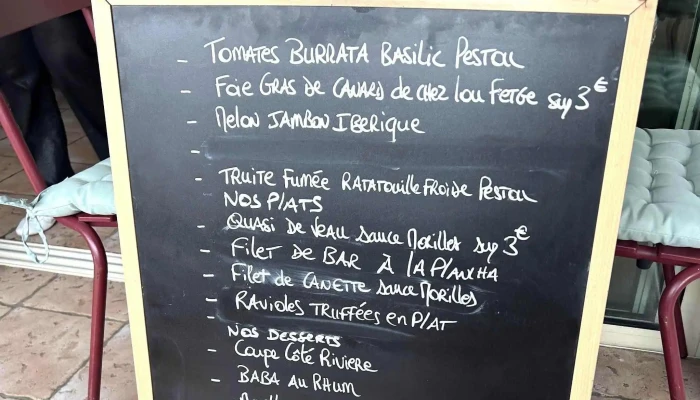 - TOMATES BURRATA BASILIC PESTOU
- FOIE GRAS DE CANARD de chez Lou FERGE sup 3€
- MELON JAMBON IBERIQUE
-
- TRUITE Fumée RATATOUILLE FROIDE PESTOU
NOS PLATS
- QUASI DE VEAU Sauce Morilles sup 3€
- FILET DE BAR À LA PLANXHA
- Filet de CANETTE Sauce Morilles
- RAVIOLES TRUFFÉES en PLAT
NOS DESSERTS
- Coupe Côté RIVIERE
- BABA AU RHUM